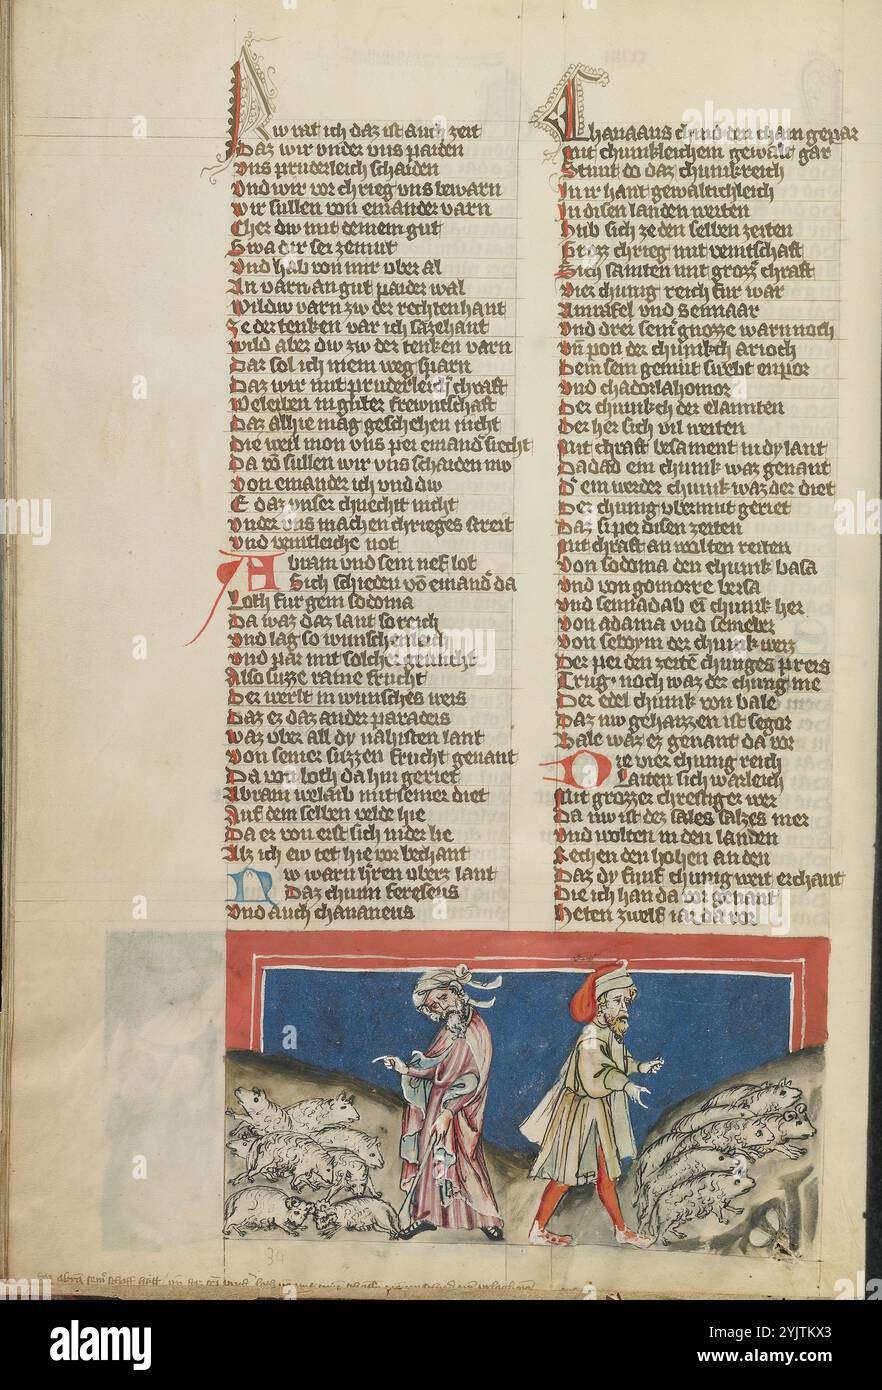 Nw rat ich daz ist auch zeit
Daz wir vnder vns paiden
Vns pruderleich schaiden
Vnd wir vor chrieg vns bewarn
Wir sullen von einander varn
Cher dw mit deinem gut
Swa dir sei ze mut
Vnd hab von mir vber al
An varn an gut paider wal
Wildw varn zw der rechten hant
Ze der tenken var ich sazehant
Wild aber dw zw der tenken varn
Dar sol ich niem weg sparn
Daz wir mit pruderleich chraft
Weleiben in guter frewntschaft
Daz allhie mag geschehen nicht
Die weil mon vns pei einand siecht
Da vō sullen wir vns schaiden nw
Von einander ich vnd dw
E daz vnser chnecht nicht
Vnder vns machen chrieges streit
Vnd veintleiche not
Abram vnd sein nef lot
Sich schieden võ einand da
Loth fur gem sodoma
Da waz daz lant so reich
Vnd lag so wunschenleich
Vnd par mit solcher genucht
Also suzze raine frucht
Der werlt in wunsches weis
Daz ez daz ander paradeis
Waz vber all dy nahisten lant
Von seiner suzzen frucht genant
Da von loth da hin geriet
Abram welaib mit seiner diet
Auf dem selben velde hie
Da er von erst sich nider lie
Alz ich ew tet hie vor bechant
Nw warn ir vberz lant
Daz chum fereseus
Vnd auch chananeus
Chanaans chind den cham gepar
Mit chunkleichem gewalt gar
Stunt do daz chunkreich
In ir hant gewaltichleich
In disen landen weiten
Hub sich ze den selben zeiten
Grozz chrieg mit veintschaft
Sich samten mit grozz chraft
Vier chunig reich fur war
Amrafel vnd Sennaar
Vnd drei sein gnozze warn noch
Vñ pon der chunkch arioch
Dem sein gemut swebt enpor
Vnd chadorlahomor
Der chunkch der elamiten
Der her sich vil weiten
Mit chraft besament in dy lant
Dadad ein chunk waz genant
D ein werder chunk waz der diet
Der chunig vbermut geriet
Daz si pei disen zeiten
Mit chraft an wolten reiten
Von sodoma den chunk basa
Vnd von gomorre bersa
Vnd sennadab eī chunk her
Von adama vnd semeber
Von seboym der chunk werz
Der pei den zeitē chunges preis
Trug noch waz der chung me
Der edel chunk von bale
Daz nw gehaizzen ist segor
Bale waz ez genant da vor
Die vier chunig reich
Laiten sich warleich
Mit grozzer chreftiger wer
Da nw ist dez sales salzes mer
Vnd wolten in den landen
Rechen den hohen anden
Daz dy funf chunig weit erchant
Die ich han da vor genant
Heten zwelf iar da vor
34
alamy
Image ID: 2YJTKX3
www.alamy.com